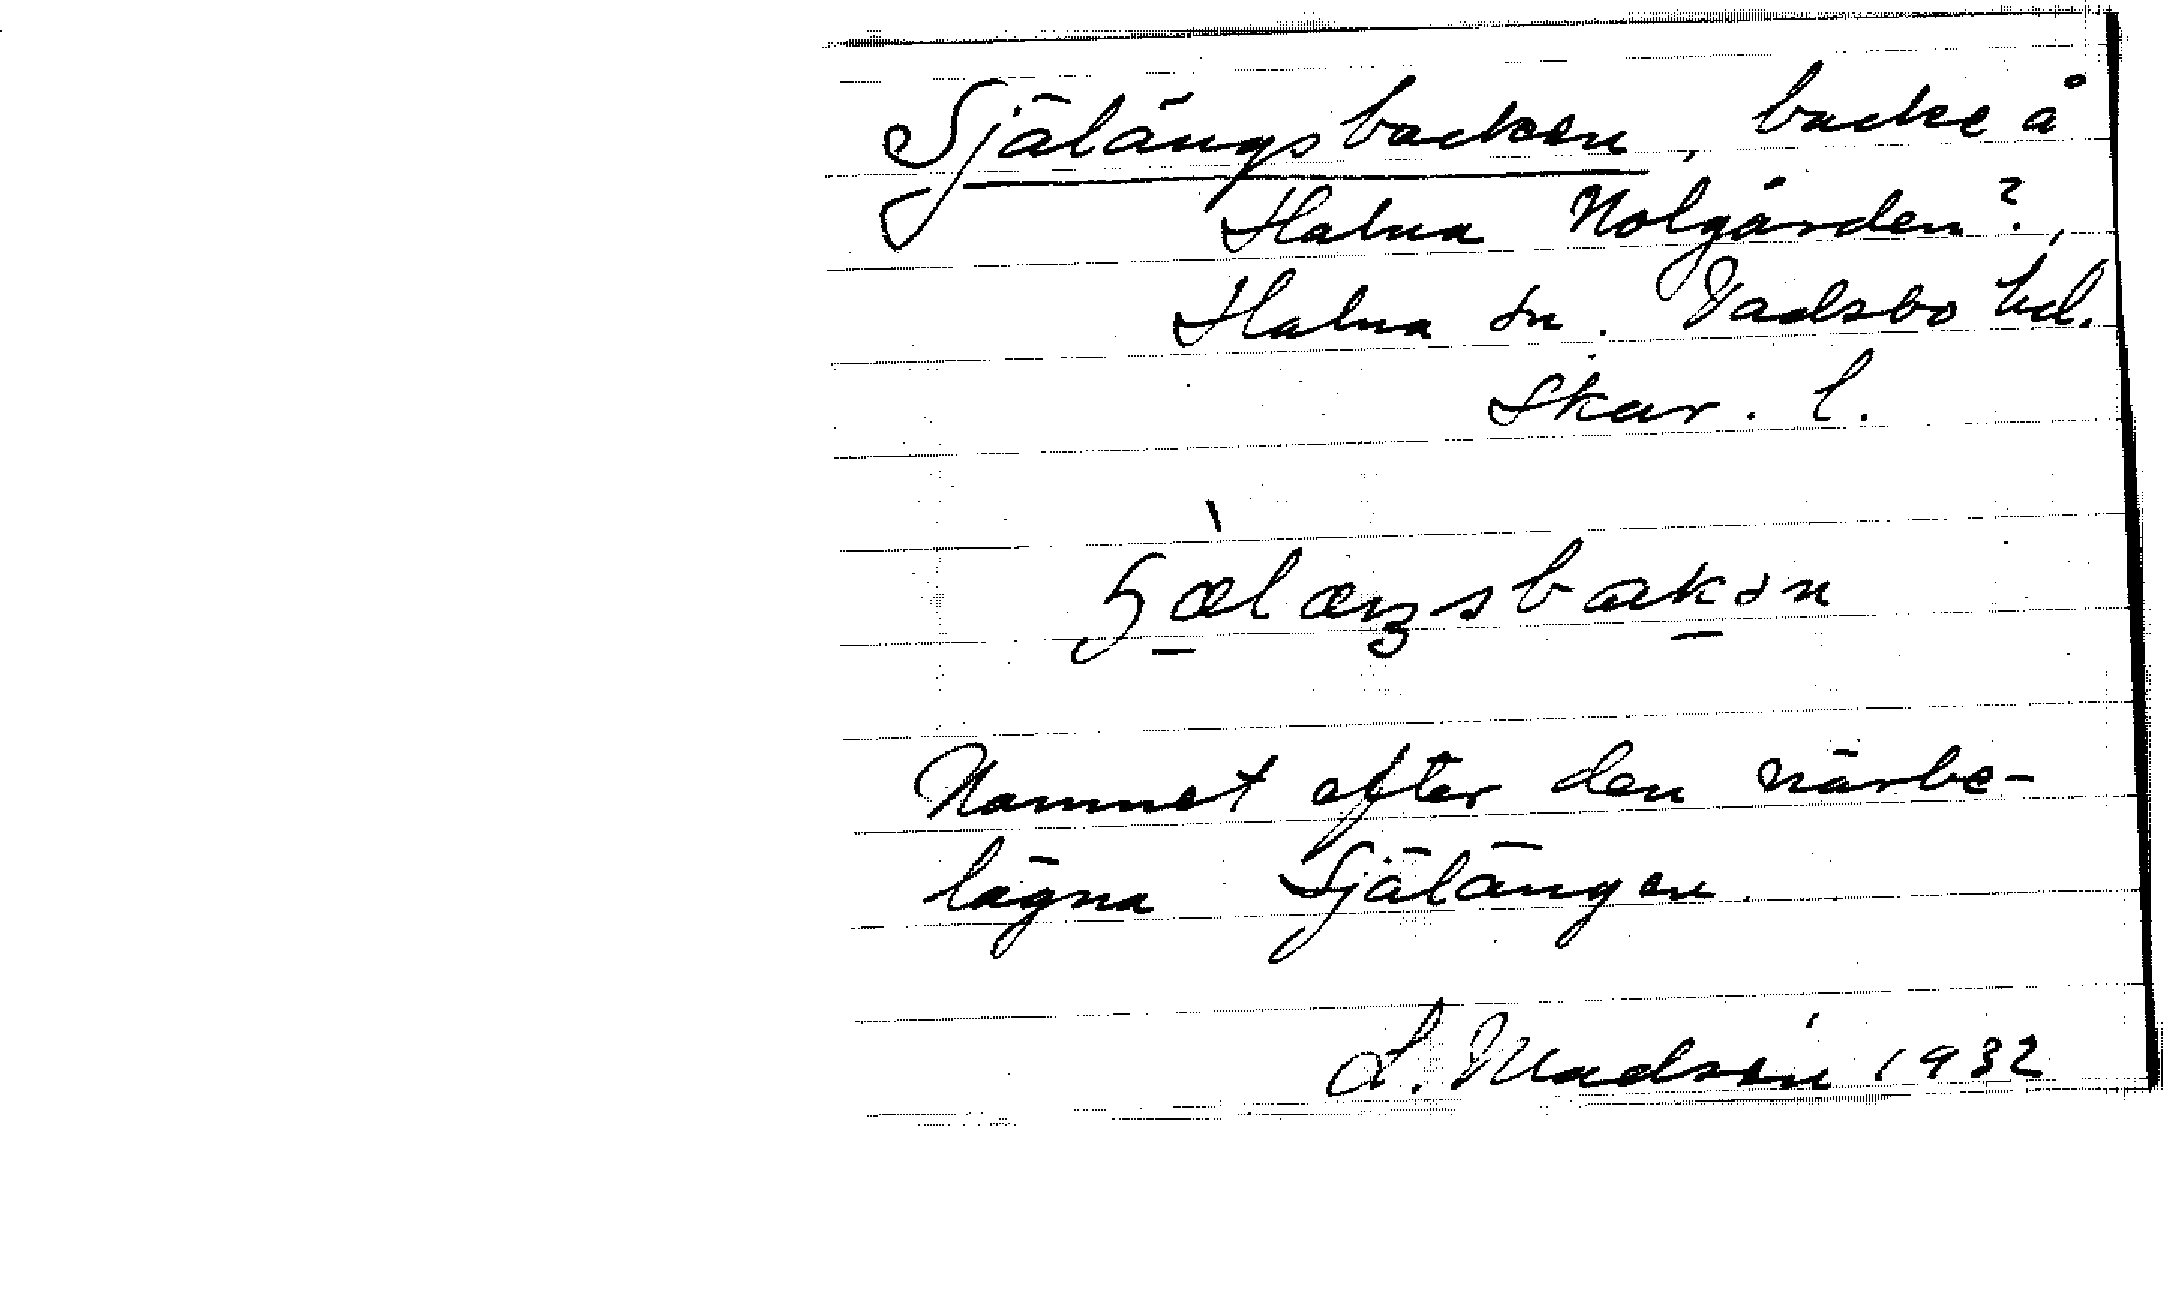 Själängsbacken, backe å
Halna Nolgården?,
Halna sn. Vadsbo hd.
Skar. l.
Namnet efter den närbe-
lägna Själängen.
L. Madsén 1932